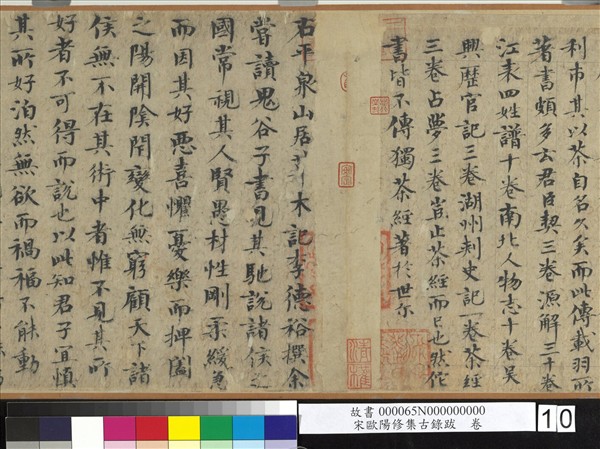 利市其以茶自名久矣而此傳載羽所
著書頗多云君臣契三卷源解三十卷
江表四姓譜十卷南北人物志十卷吳
興歷官記三卷湖州刺史記一卷茶經
三卷占夢三卷豈止茶經而已也然佗
書皆不傳獨茶經著於世尔
右平泉山居草木記李德裕撰余
嘗讀鬼谷子書見其馳說諸侯之
國常視其人賢愚材性剛柔緩急
而因其好惡喜懼憂樂而捭闔
之陽開陰閉變化無窮顧天下諸
侯無不在其術中者惟不見其所
好者不可得而說也以此知君子宜慎
其所好泊然無欲而禍福不能動
故書 000065N000000000
宋歐陽修集古錄跋 卷
10